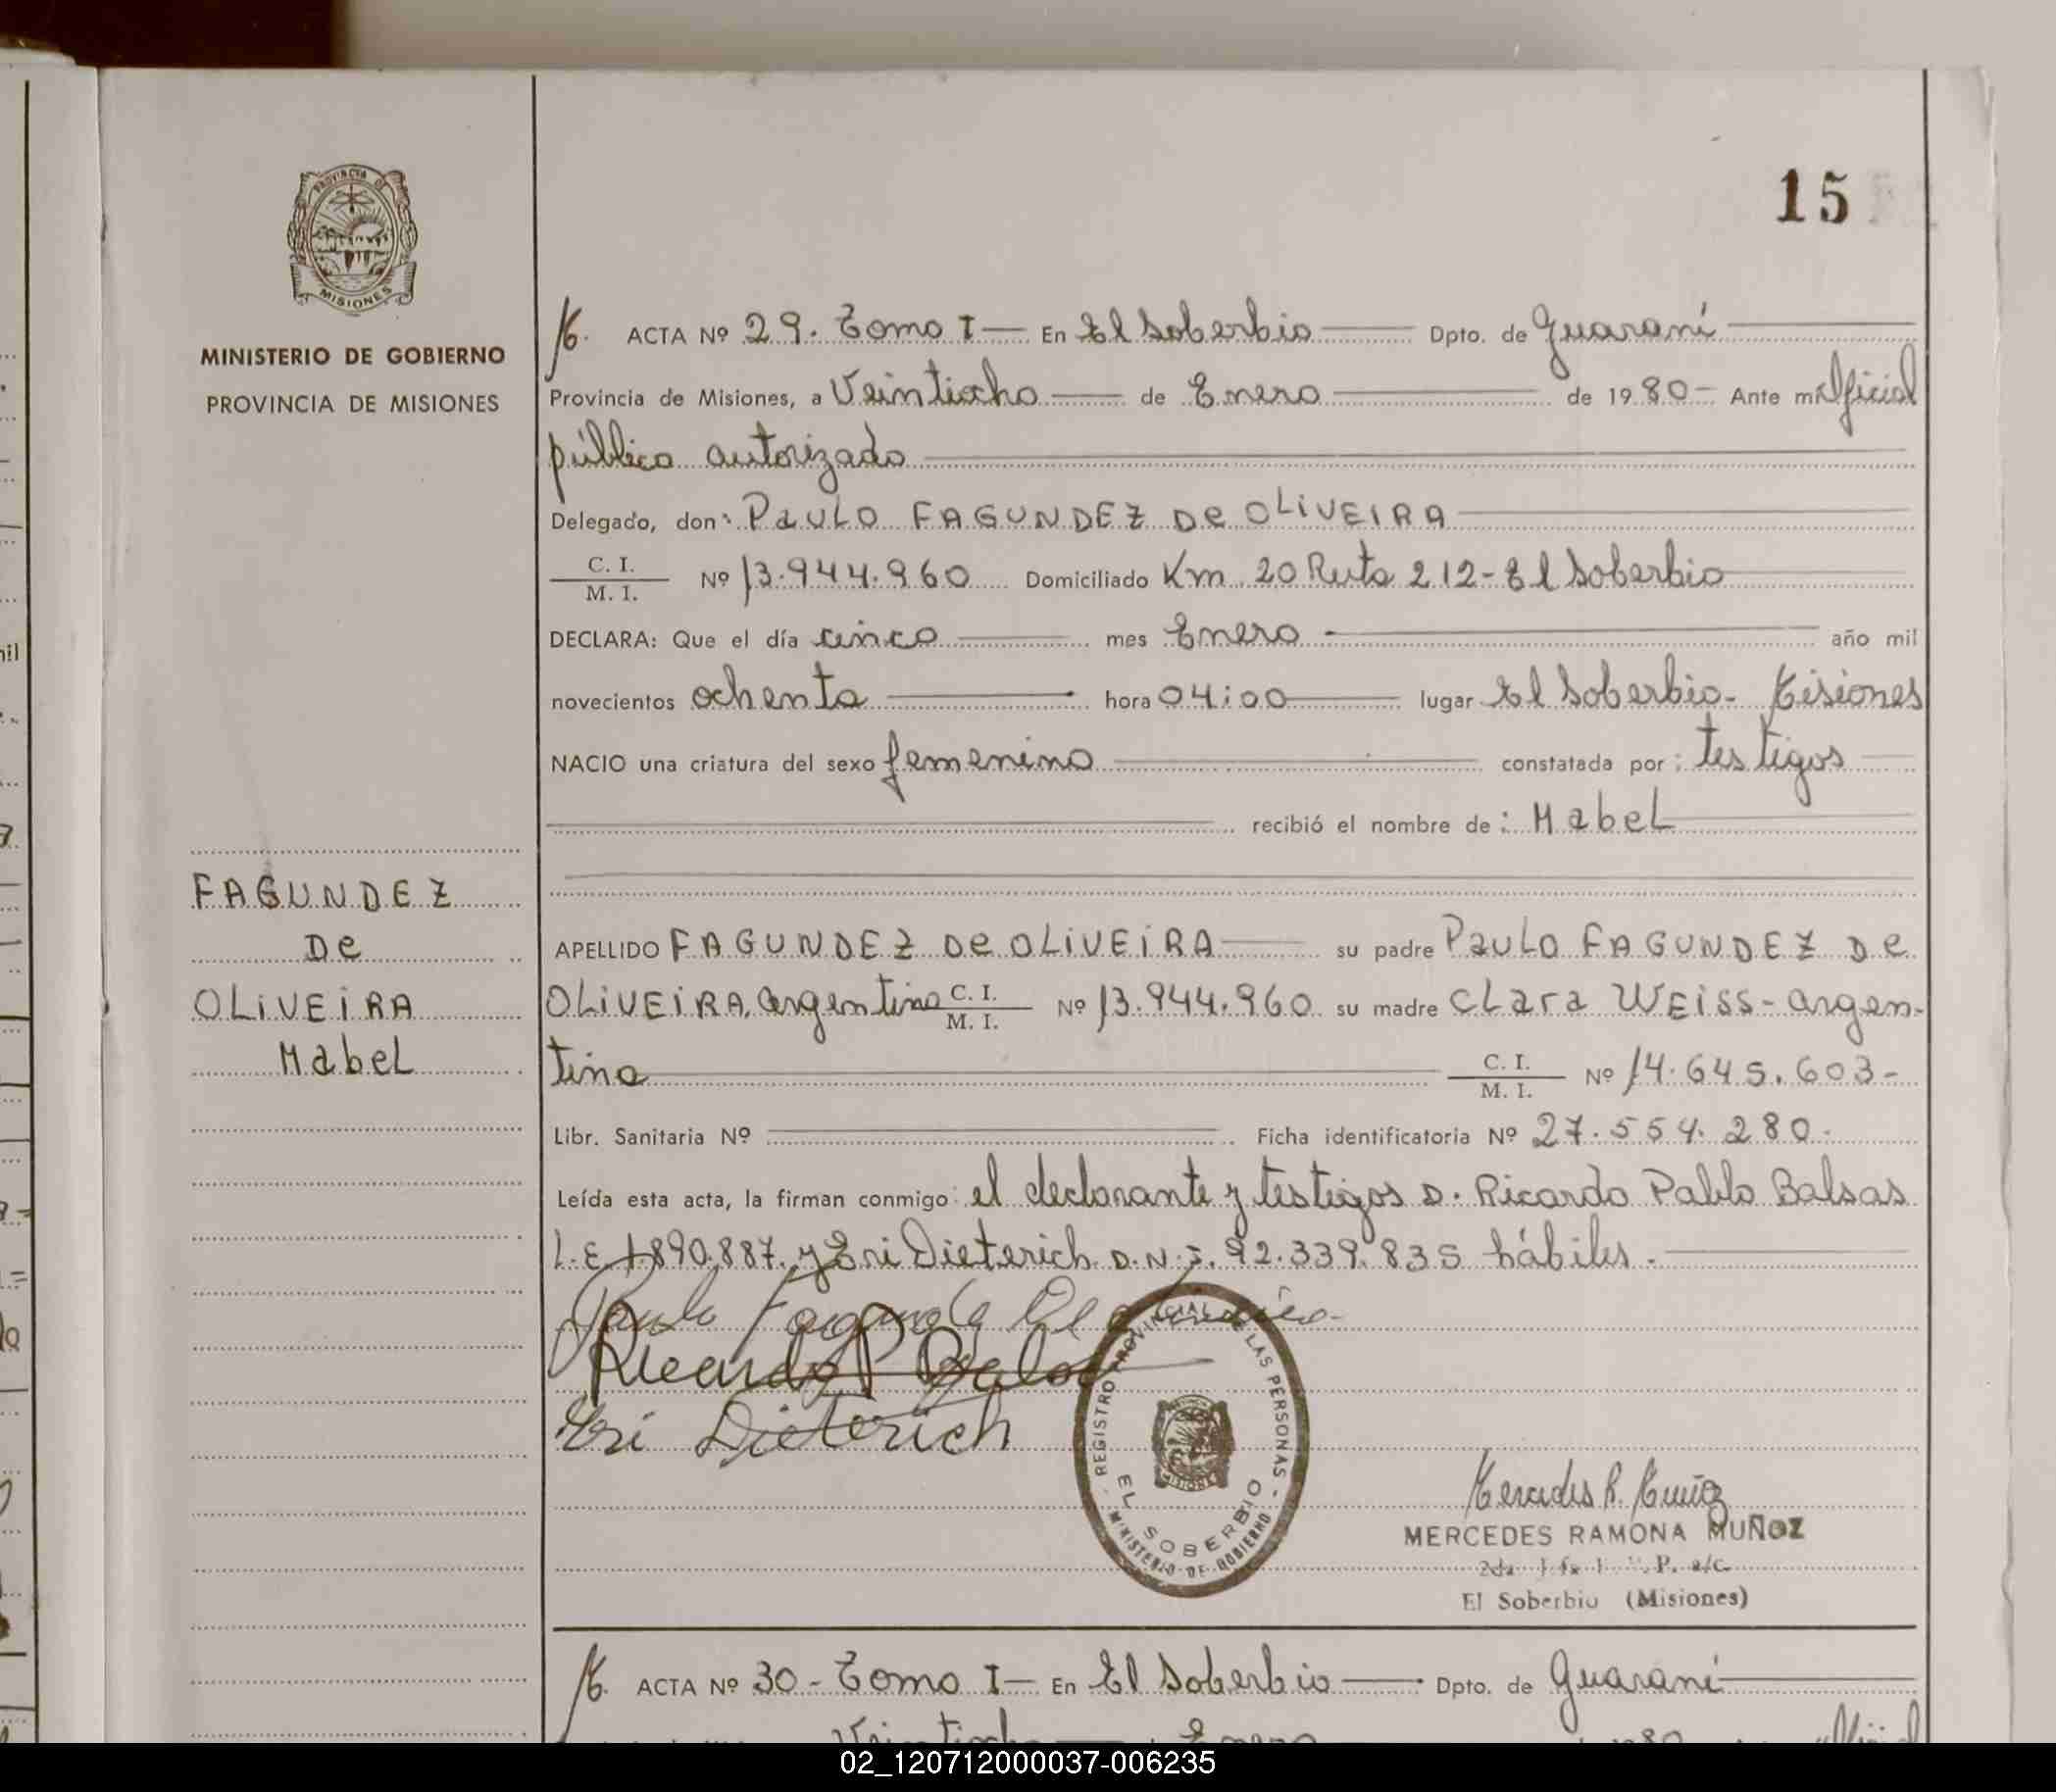 15
PROVINCIA DE
MISIONES
MINISTERIO DE GOBIERNO
PROVINCIA DE MISIONES
ACTA Nº 29. Tomo I — En El Soberbio — Dpto. de Guaraní
Provincia de Misiones, a Veintiocho — de Enero — de 1980 - Ante mí Oficial
público autorizado
Delegado, don: PAULO FAGUNDEZ De OLIVEIRA
C. I. / M. I. Nº 13.944.960 Domiciliado Km 20 Ruta 212 - El Soberbio
DECLARA: Que el día cinco — mes Enero — año mil
novecientos ochenta — hora 04:00 — lugar El Soberbio - Misiones
NACIO una criatura del sexo femenino — constatada por: testigos
recibió el nombre de: MabeL
FAGUNDEZ
De
OLIVEIRA
MabeL
APELLIDO FAGUNDEZ De OLIVEIRA — su padre PAULO FAGUNDEZ De
OLIVEIRA, argentino C. I. / M. I. Nº 13.944.960 su madre CLara WEISS - argen-
tina — C. I. / M. I. Nº 14.645.603-
Libr. Sanitaria Nº — Ficha identificatoria Nº 27.554.280.
Leída esta acta, la firman conmigo: el declarante y testigos D. Ricardo Pablo Balsas
L.E. 1.890.887. y Eri Dieterich D.N.I. 92.339.835 hábiles.
Ricardo P
Eri Dieterich
REGISTRO PROVINCIAL DE LAS PERSONAS - MINISTERIO DE GOBIERNO -
EL SOBERBIO
MISIONES
Mercedes R. Muñoz
MERCEDES RAMONA MUÑOZ
El Soberbio (Misiones)
ACTA Nº 30 - Tomo I — En El Soberbio — Dpto. de Guaraní
Veintiocho — Enero
02_120712000037-006235